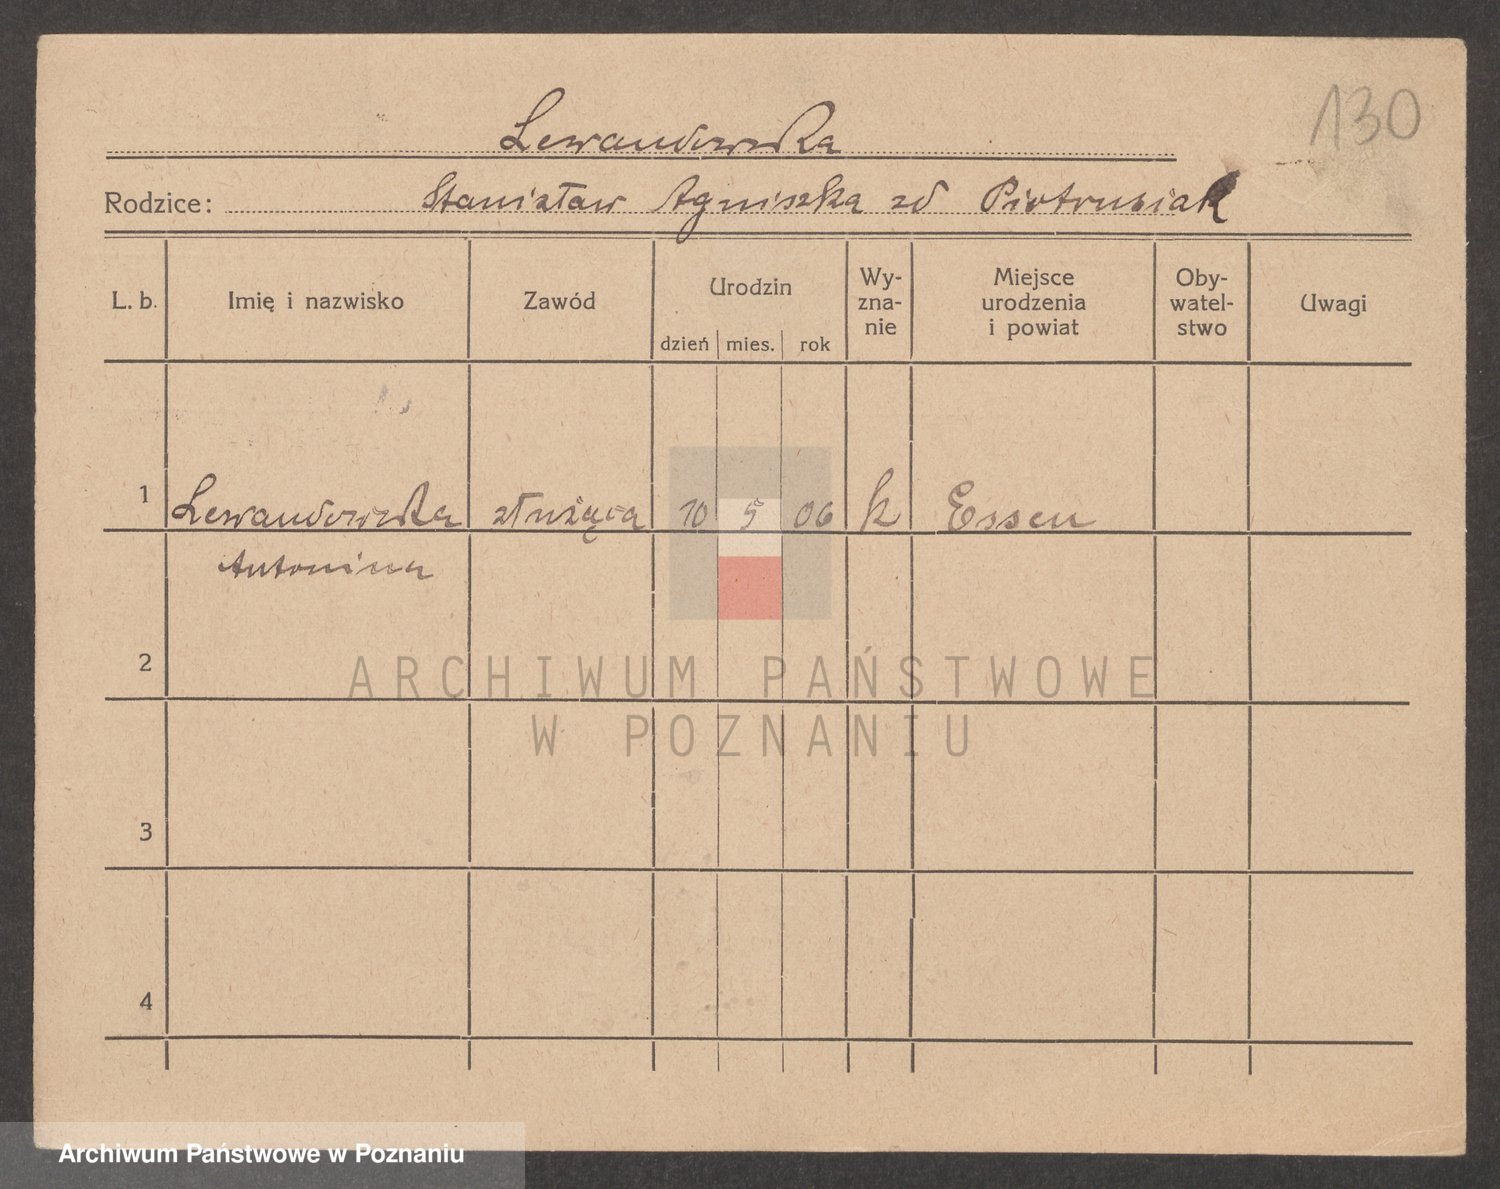 130
Lewandowska
Rodzice: Stanisław Agniszka zd Piotrusiak
L. b. Imię i nazwisko Zawód Urodzin dzień mies. rok Wy-zna-nie Miejsce urodzenia i powiat Oby-watel-stwo Uwagi
1 Lewandowska służąca 10 5 06 k Essen
Antonina
2
ARCHIWUM PAŃSTWOWE
W POZNANIU
3
4
Archiwum Państwowe w Poznaniu